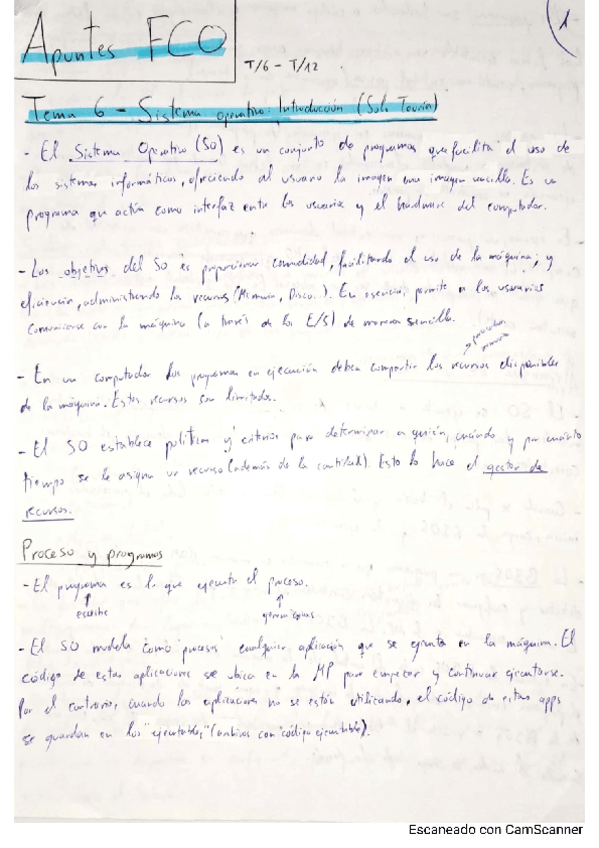 Apuntes FCO
1
T/6 - T/12
Tema 6 - Sistema operativo: Introducción (Solo Teoría)
- El Sistema Operativo (SO) es un conjunto de programas que facilita el uso de
los sistemas informáticos, ofreciendo al usuario la imagen una imagen sencilla. Es un
programa que actúa como interfaz entre los usuarios y el hardware del computador.
- Los objetivos del SO es proporcionar comodidad, facilitando el uso de la máquina; y
eficiencia, administrando los recursos (Memoria, Disco..). En esencia, permite a los usuarios
comunicarse con la máquina (a través de los E/S) de manera sencilla.
- En un computador los programas en ejecución deben compartir los recursos disponibles
de la máquina. Estos recursos son limitados.
- El SO establece políticas y criterios para determinar a quién, cuándo y por cuánto
tiempo se le asigna un recurso (además de la cantidad). Esto lo hace el gestor de
recursos.
Proceso y programas
- El programa es lo que ejecuta el proceso.
- El SO modela como "procesos" cualquier aplicación que se ejecuta en la máquina. El
código de estas aplicaciones se ubica en la MP para empezar y continuar ejecutarse.
Por el contrario, cuando las aplicaciones no se están utilizando, el código de estas apps
se guardan en los "ejecutables" (archivos con código ejecutable).
Escaneado con CamScanner